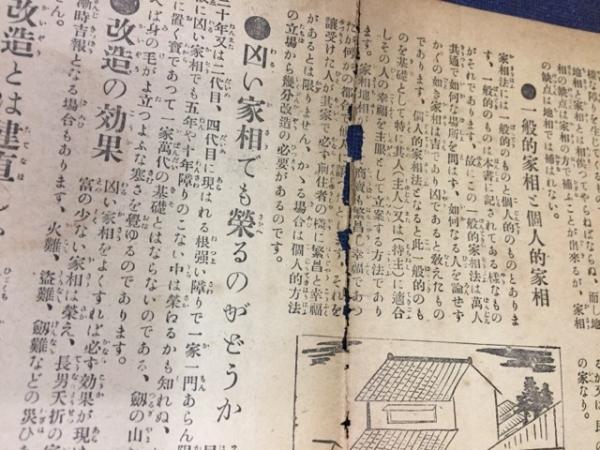 様な障りを生じてくる
地相と家相とは相俟つてやらねばならぬ、而し地
相の缺点は家相の方で補ふことが出來るが、家相
の缺点は地相では補はれない。
●一般的家相と個人的家相
家相法には一般的のものと個人的のものとありま
す、一般的のものは本書に記されてある様なもの
がそれであります、故にこの一般的家相法は萬人
共通で如何なる場所を問はず、如何なる人を論せず
かくの如き家相は吉であり凶であると敎えたもの
であります。個人的家相法となると此一般的のもの
を基礎として特に其人(主人)又は(持主)に適合
しその人の幸福を主眼として立案する方法であり
ます。家相地相
商賣も繁昌し幸福であつ
たか何かの都合で他人に譲
それを
讓受けた人が其家で必ず前住者の樣に繁昌と幸福
があるとは限りません。かゝる場合は個人的方法
の立場から幾分改造の必要があるのです。
●凶い家相でも榮るのがどうか
に凶い家相でも五年や十年障りのこない中は榮ねるかも知れぬ、
三十年又は二代目、四代目に現はれる根强い障りで一家一門あらん限
に置く寳であつて一家萬代の基礎とはならないのである、劔の山
ば身の毛がよ立つよふな寒さを覺ゆるのであります。
●改造の効果
凶い家相をよくすれば必ず効果が現は
富の少ない家相は榮え、長男夭折の家
漸時吉報となる場合もあります、火難、盜難、劔難などの災ひ
●改造とは建直し
るが又は
の家なり。